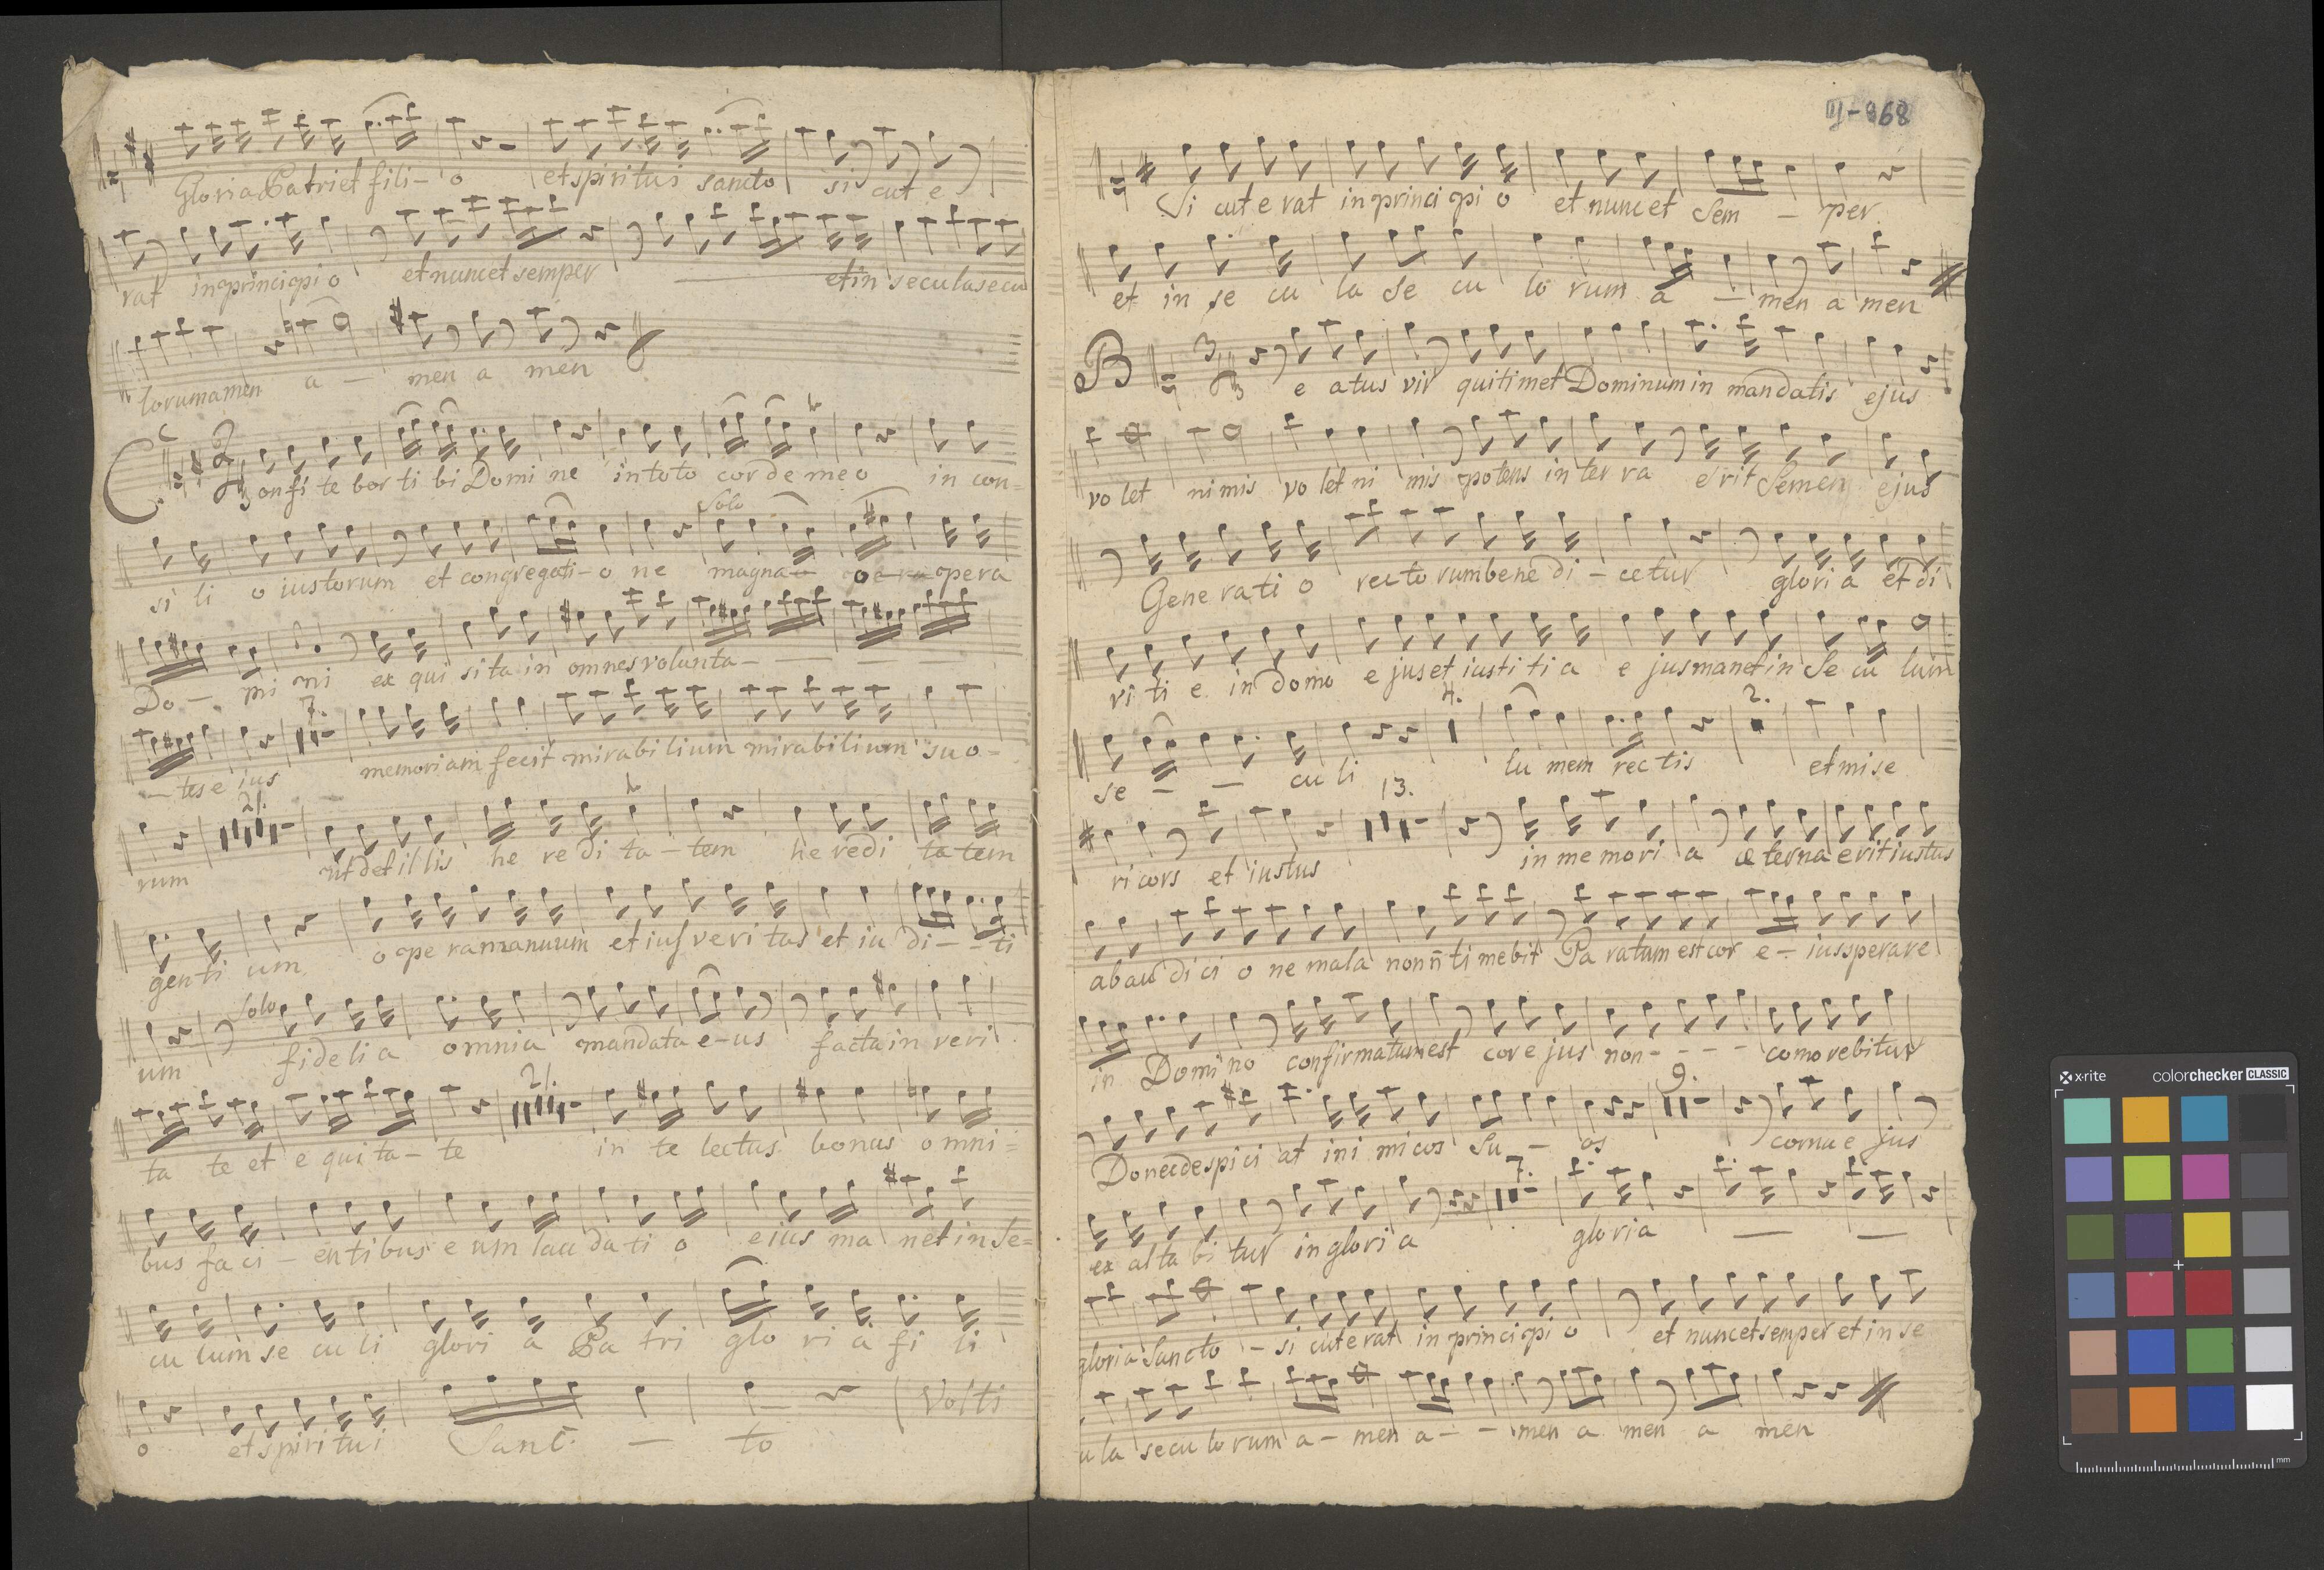 Gloria Patri et fili - o et spiritui sancto si cut e
rat in principi o et nunc et semper — et in secula secu
lorum amen a — men a men
C onfi te bor ti bi Domi ne in toto cor de me o in con=
Solo
si li o iustorum et congregati - o ne magna opera
Do — mi ni ex qui si ta in omnes volunta - — —
7.
— tes e ius memoriam fecit mirabilium mirabilium su o -
21.
rum ut det il lis he re di ta - tem he redi ta tem
genti um o pe ra manuum et ius veri tas et iu di - - ti
Solo
um fide li a omnia mandata e - us facta in veri
21.
ta te et e qui ta - te in te lectus bonus o mni =
bus fa ci - entibus e um lau da ti o eius ma net in Se =
cu lum se cu li glori a Pa tri glo ri a fi li
o et spiri tu i Sanc — to Volti
II-968
Si cut e rat in princi pi o et nunc et Sem - per
et in se cu la Se cu lo rum a - men a men
B 3 e atus vir qui timet Dominum in mandatis ejus
vo let nimis vo let ni mis potens in ter ra erit Semen ejus
Gene rati o recto rum bene di - cetur glori a et di
vi ti e in domo e jus et iusti ti a e jus manet in Se cu lum
4. 2.
se - — cu li lu men rectis et mise
13.
ri cors et iustus in me mori a æ terna erit iustus
ab au di ci o ne mala non ti mebit Pa ratum est cor e - ius sperare
in Domi no confirmatum est cor e jus non - - - - como vebitur
9.
Donec despi ci at ini micos Su - os cornu e jus
7.
ex al ta bi tur in glori a gloria — —
gloria Sancto - si cut e rat in princi pi o et nunc et semper et in se
u la secu lo rum a - men a - - men a men a men
x-rite colorchecker CLASSIC
mm